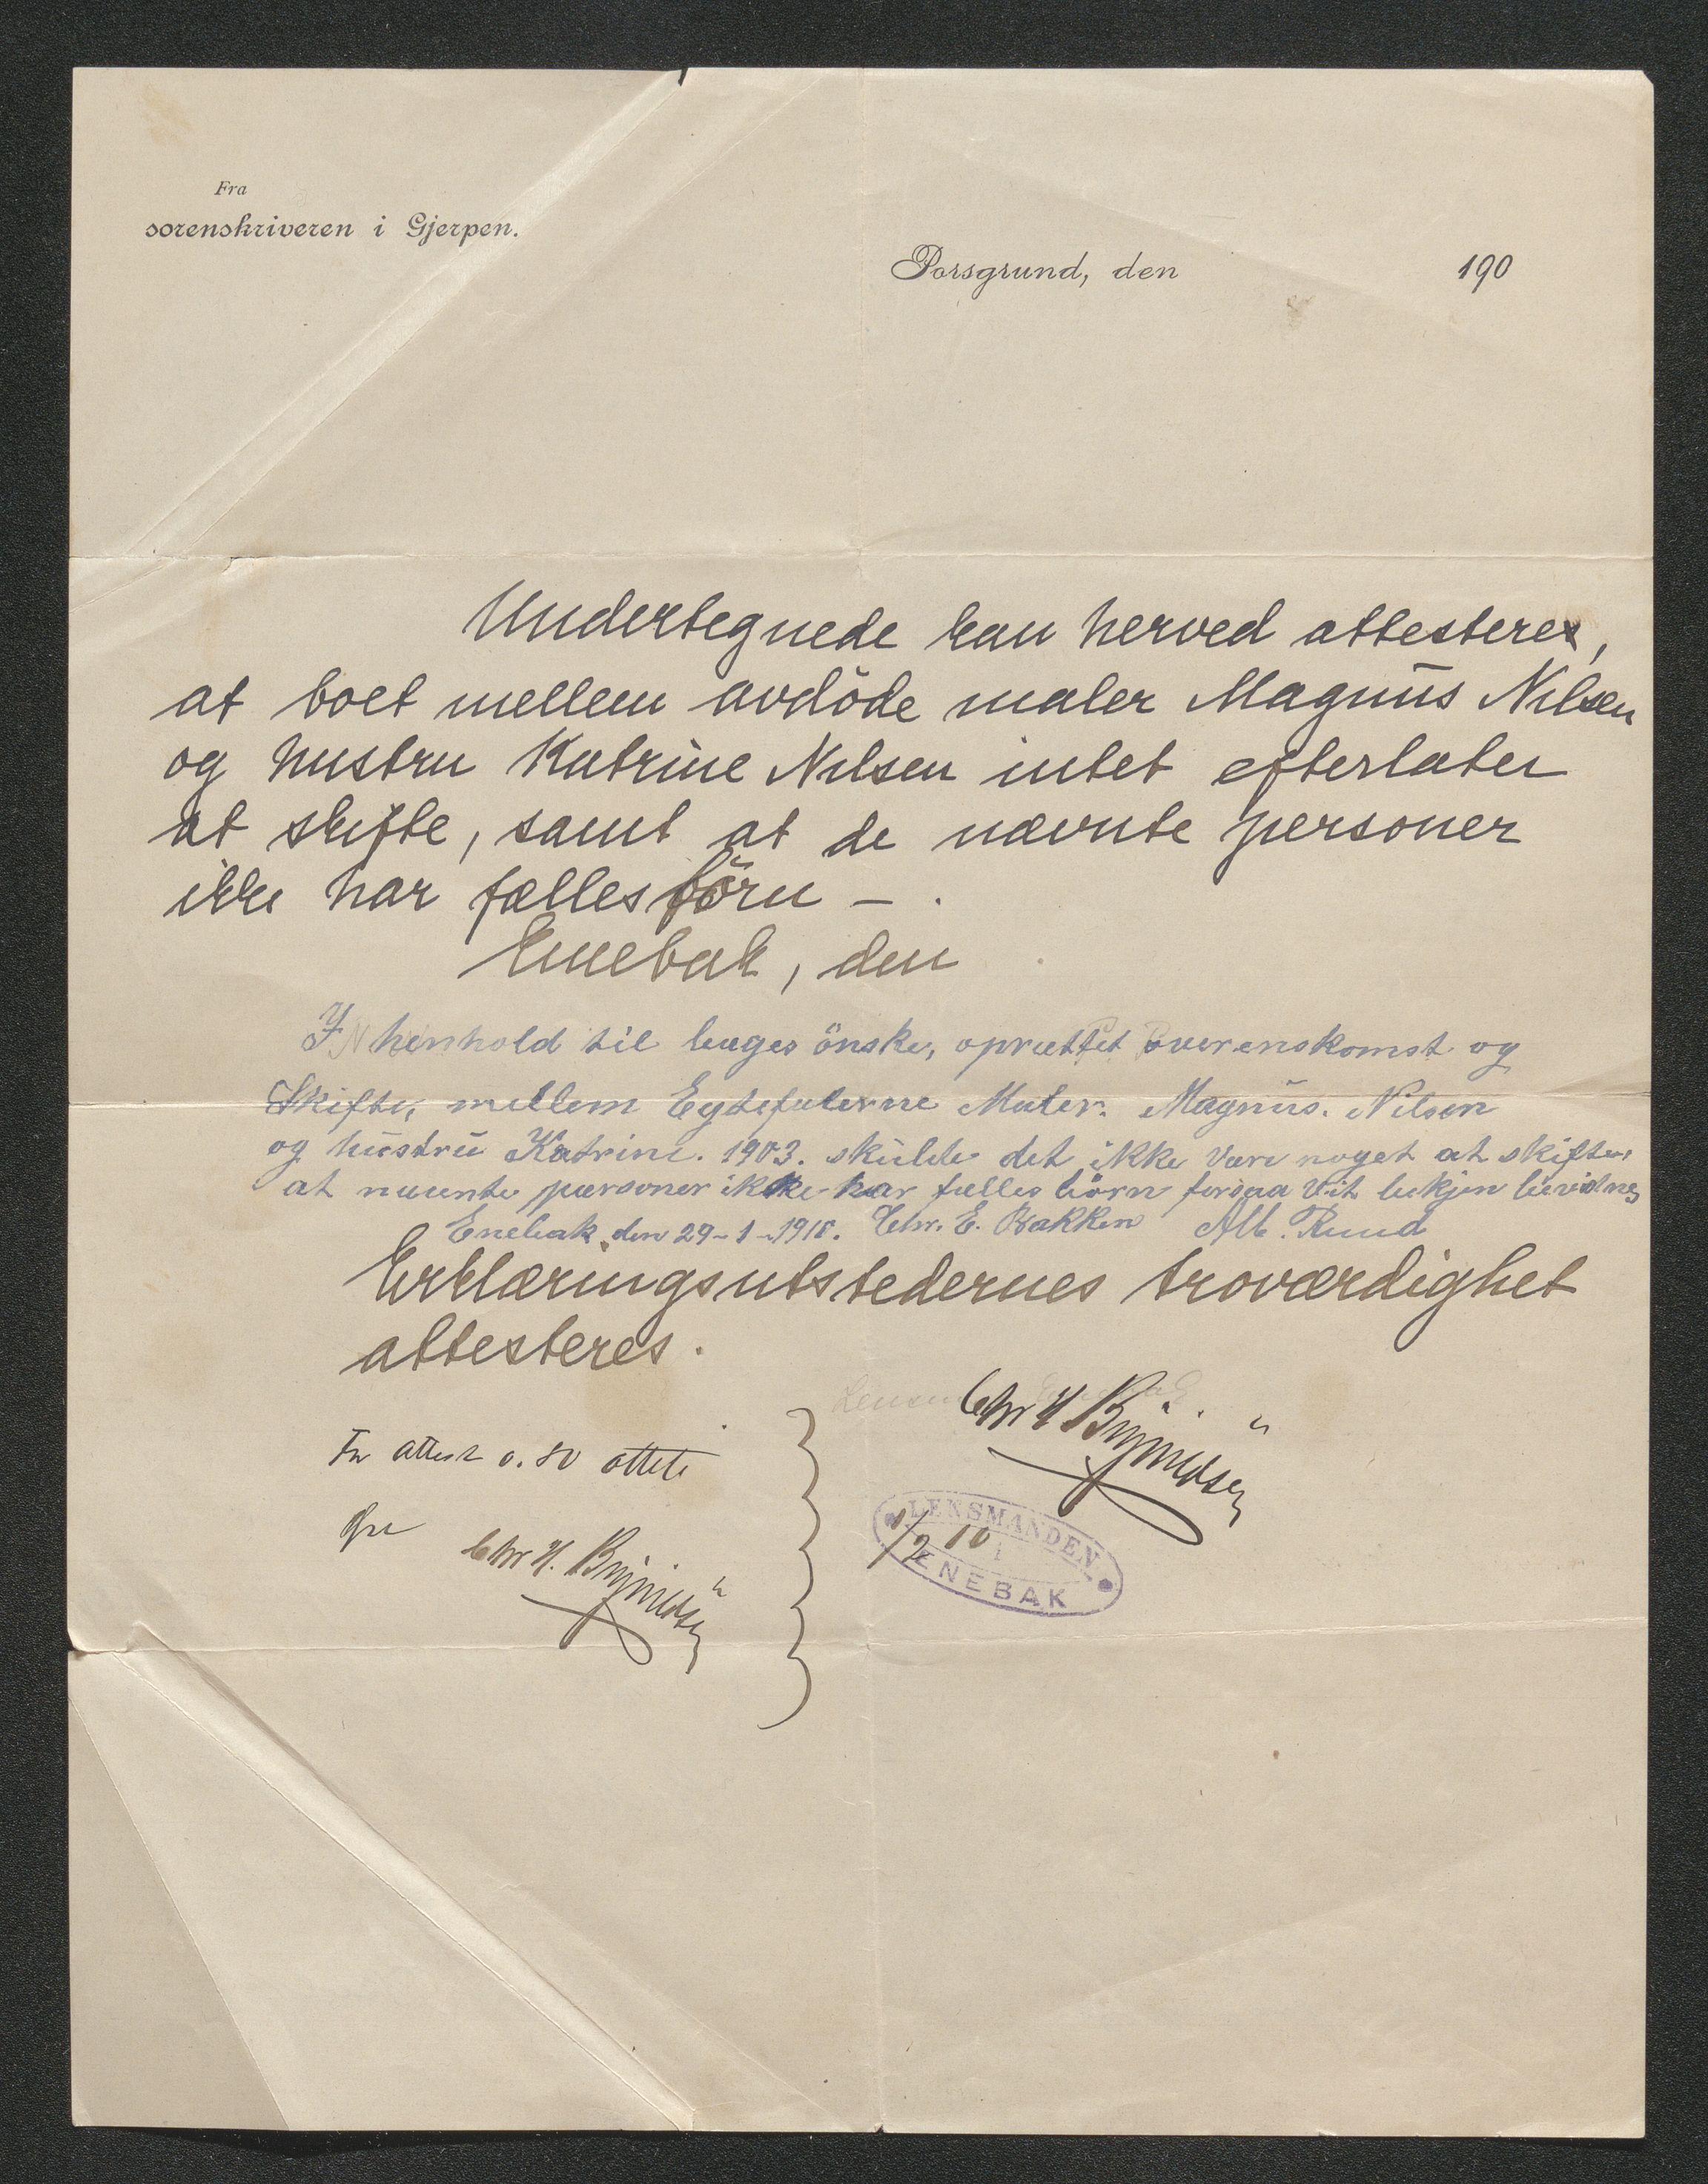 Fra
sorenskriveren i Gjerpen.
Porsgrund, den 190
Undertegnede kan herved attestere,
at boet mellem avdöde maler Magnus Nilsen
og hustru Katrine Nilsen intet efterlater
at skifte, samt at de nævnte personer
ikke har fælles börn – .
Enebak, den
I henhold til begges önske, oprættet overenskomst og
Skifte, mellem Egtefolerne Maler. Magnus. Nilsen
og hustru Katrine. 1903. skulde det ikke være noget at skifte,
at nævnte personer ikke har fælles börn forsaa vit bekjen bevidnes
Enebak den 29-1-1910. Chr. E. Bakken Alb. Ruud
Erklæringsutstedernes troværdighet
attesteres.
Lensm
Chr H
For attest 0.80 otteti
øre
Chr H.
1/2 10
LENSMANDEN
i
ENEBAK